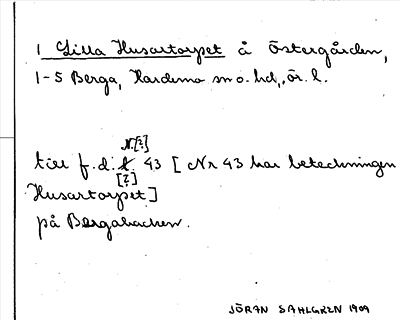 1 Lilla Husartorpet å Östergården,
1-5 Berga, Hardemo sn o. hd., ör. l.
N.[?]
till f. d. k 43 [Nr 43 har beteckningen
[?]
Husartorpet]
på Bergabacken.
JÖRAN SAHLGREN 1909